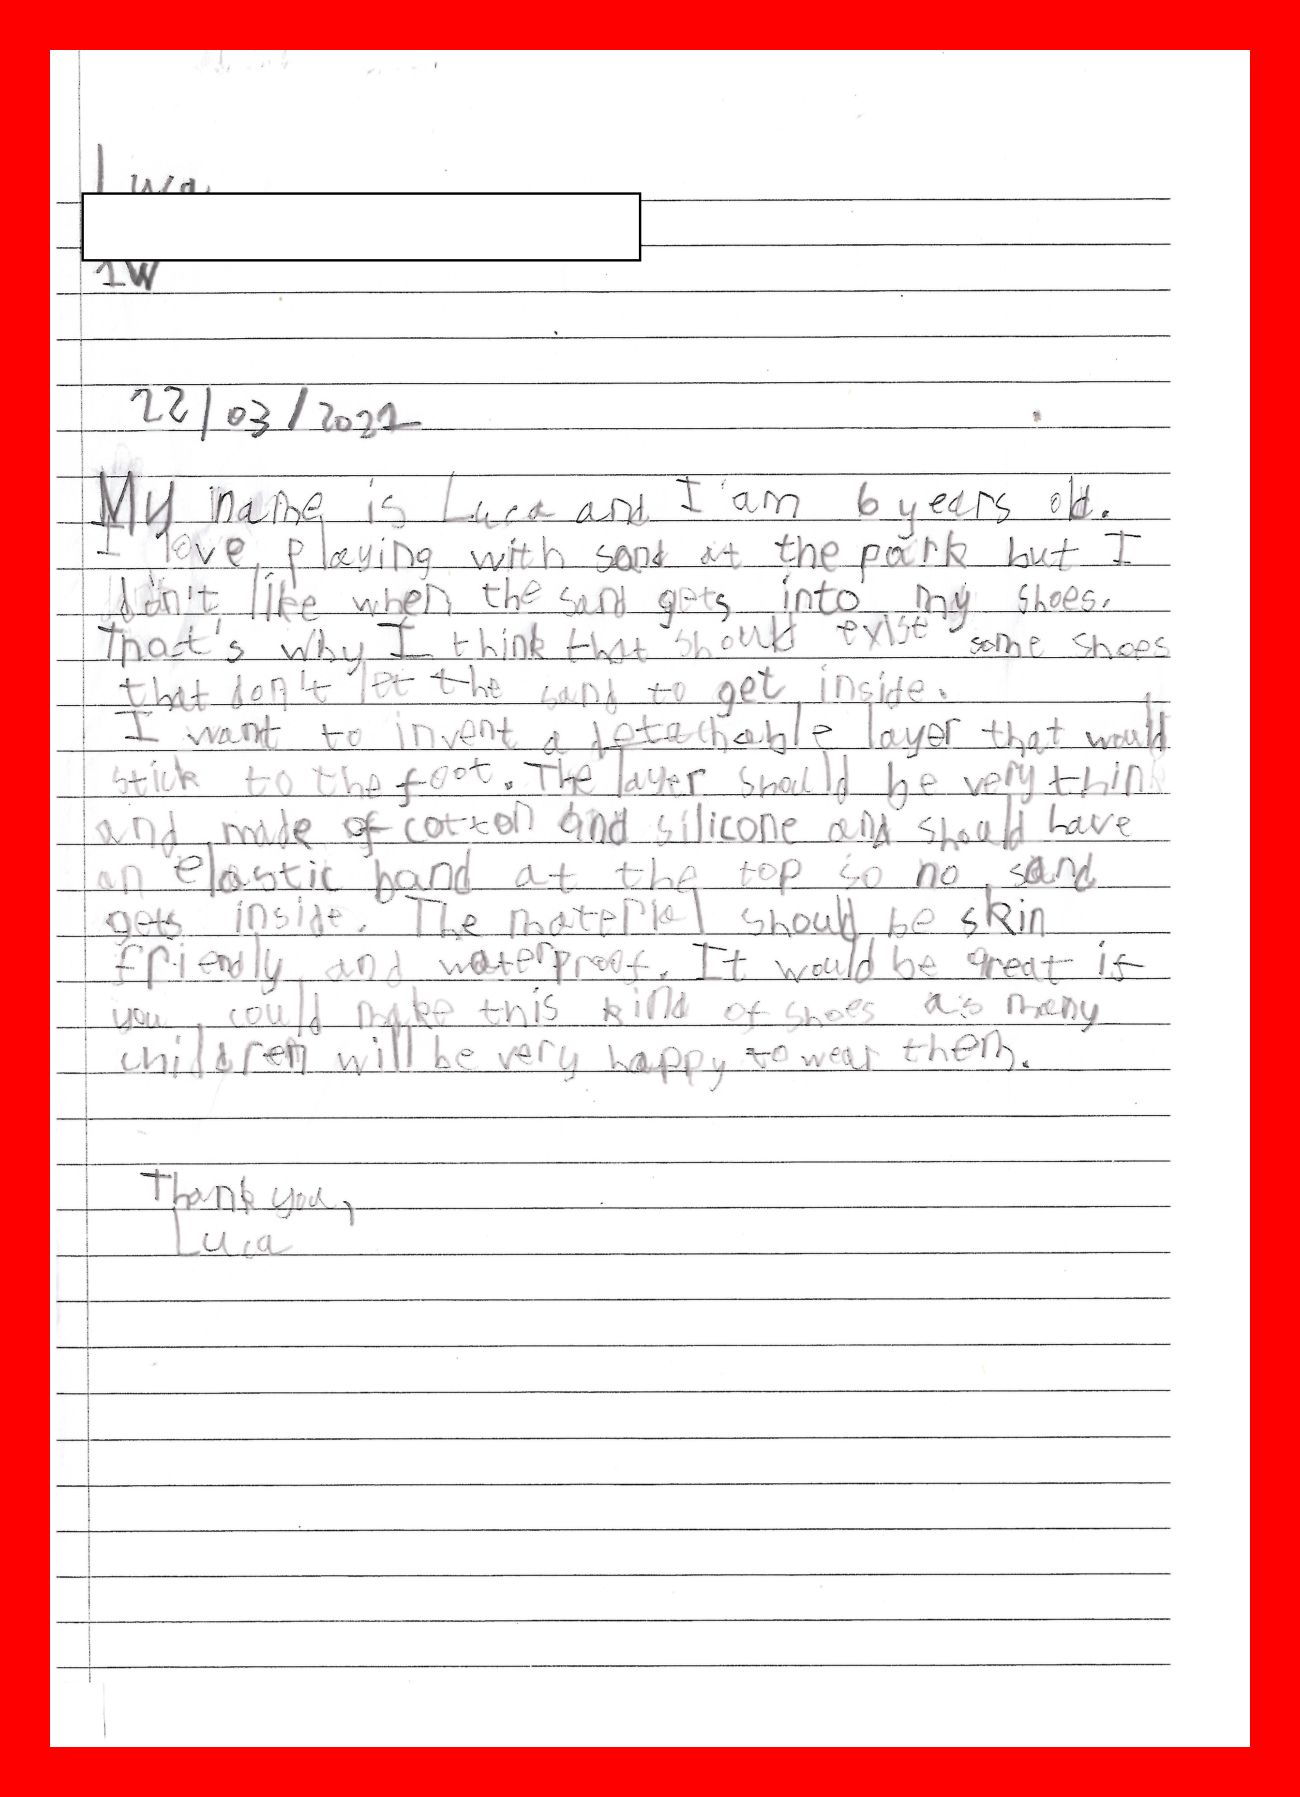 Luca
1W
22/03/2021
My name is Luca and I am 6 years old.
I love playing with sand at the park but I
didn't like when the sand gets into my shoes.
That's why I think that should exist some shoes
that don't let the sand to get inside.
I want to invent a detachable layer that would
stick to the foot. The layer should be very think
and made of cotton and silicone and should have
an elastic band at the top so no sand
gets inside. The material should be skin
friendly and waterproof. It would be great if
you could make this kind of shoes as many
children will be very happy to wear them.
Thank you,
Luca